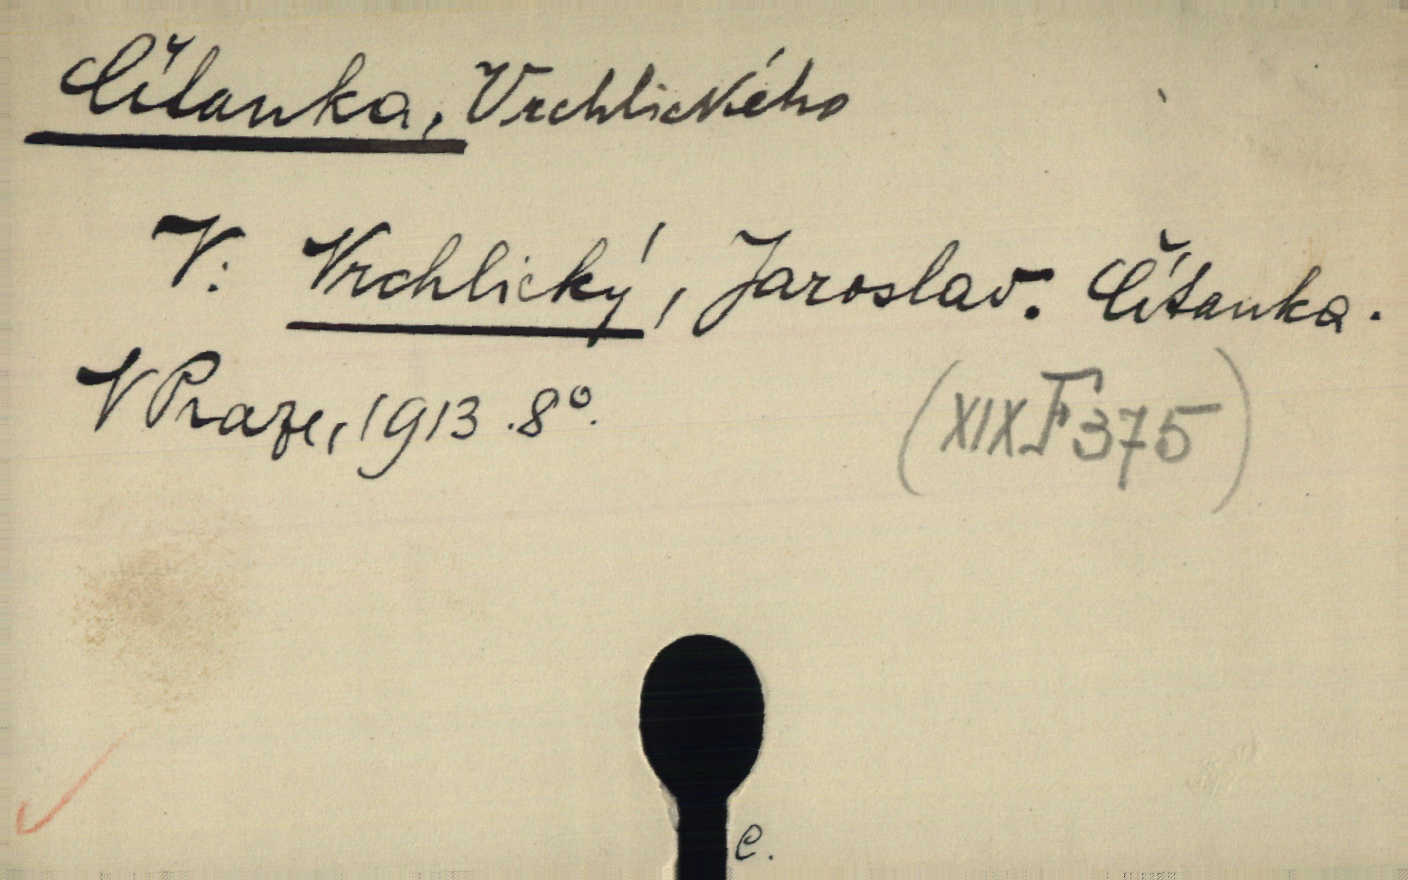 Čítanka, Vrchlického
V: Vrchlický, Jaroslav. Čítanka.
V Praze, 1913. 8°.
(XIX F 375)
e.